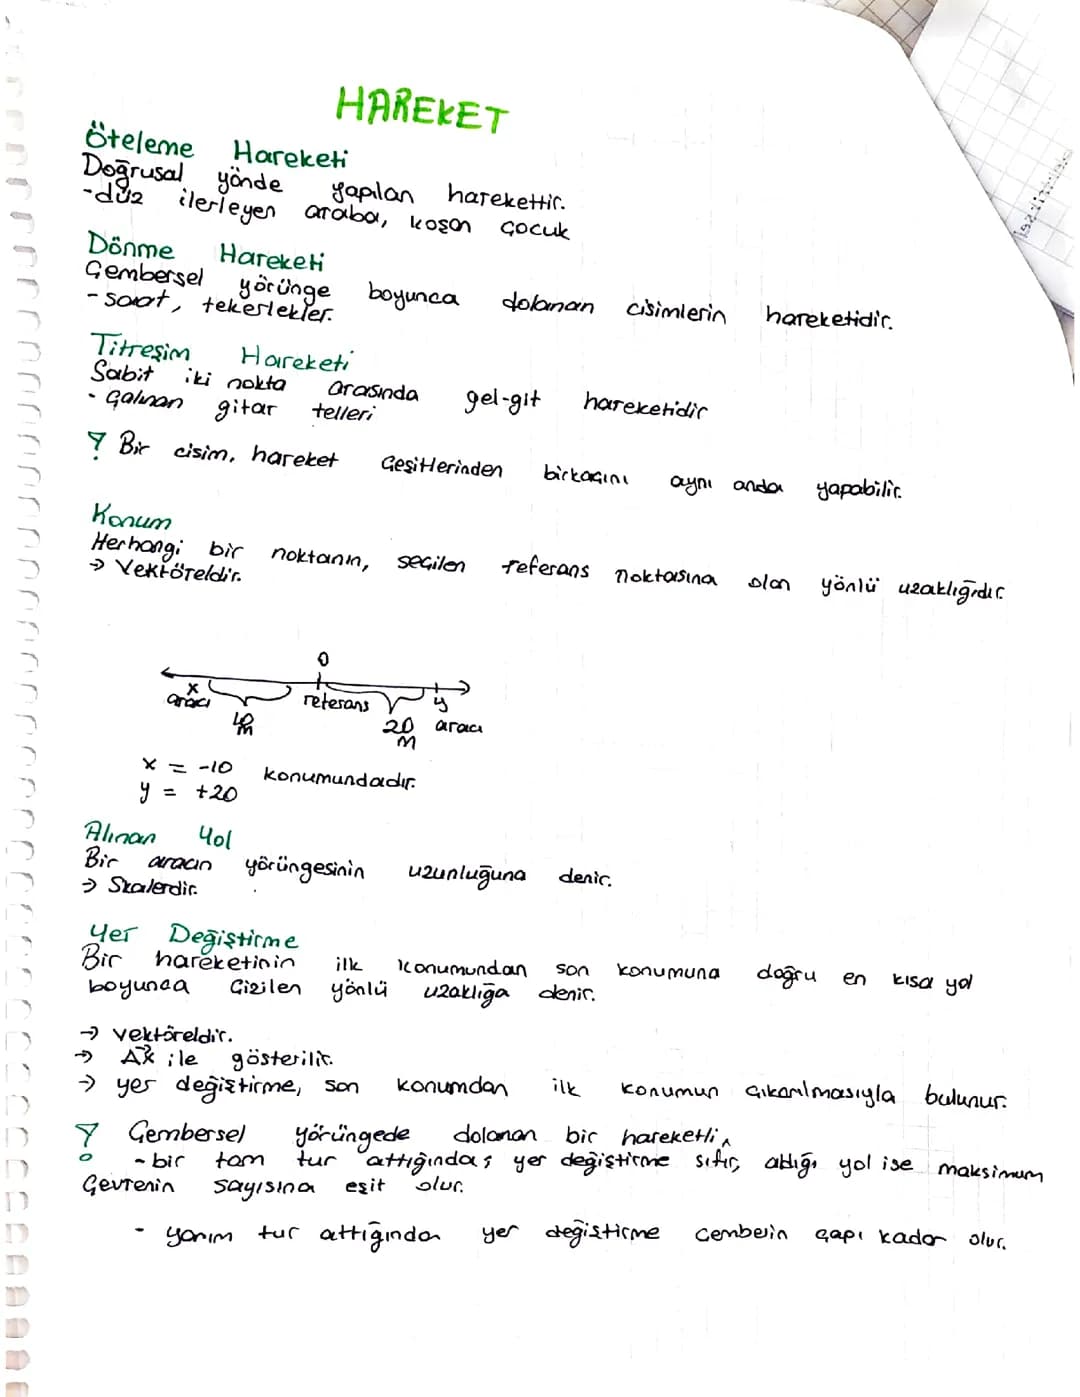 HAREKET
Öteleme Hareketi
Doğrusal yönde yapılan harekettir.
-düz ilerleyen araba, koşan çocuk
Dönme Hareketi
Çembersel yörünge boyunca dolanan cisimlerin hareketidir.
- saat, tekerlekler.
Titreşim Hareketi
Sabit iki nokta arasında gel-git hareketidir
- çalınan gitar telleri
! Bir cisim, hareket çeşitlerinden birkaçını aynı anda yapabilir.
Konum
Herhangi bir noktanın, seçilen referans noktasına olan yönlü uzaklığıdır.
→ Vektöreldir.
0
x referans y
aracı 10 m 20 m aracı
x = -10 konumundadır.
y = +20
Alınan Yol
Bir aracın yörüngesinin uzunluğuna denir.
→ Skalerdir.
Yer Değiştirme
Bir hareketinin ilk konumundan son konumuna doğru en kısa yol
boyunca çizilen yönlü uzaklığa denir.
→ vektöreldir.
→ ile gösterilir.
→ yer değiştirme, son konumdan ilk konumun çıkarılmasıyla bulunur.
! Çembersel yörüngede dolanan bir hareketli,
- bir tam tur attığında; yer değiştirme sıfır, aldığı yol ise maksimum
çevrenin sayısına eşit olur.
- yarım tur attığında yer değiştirme çemberin çapı kadar olur.